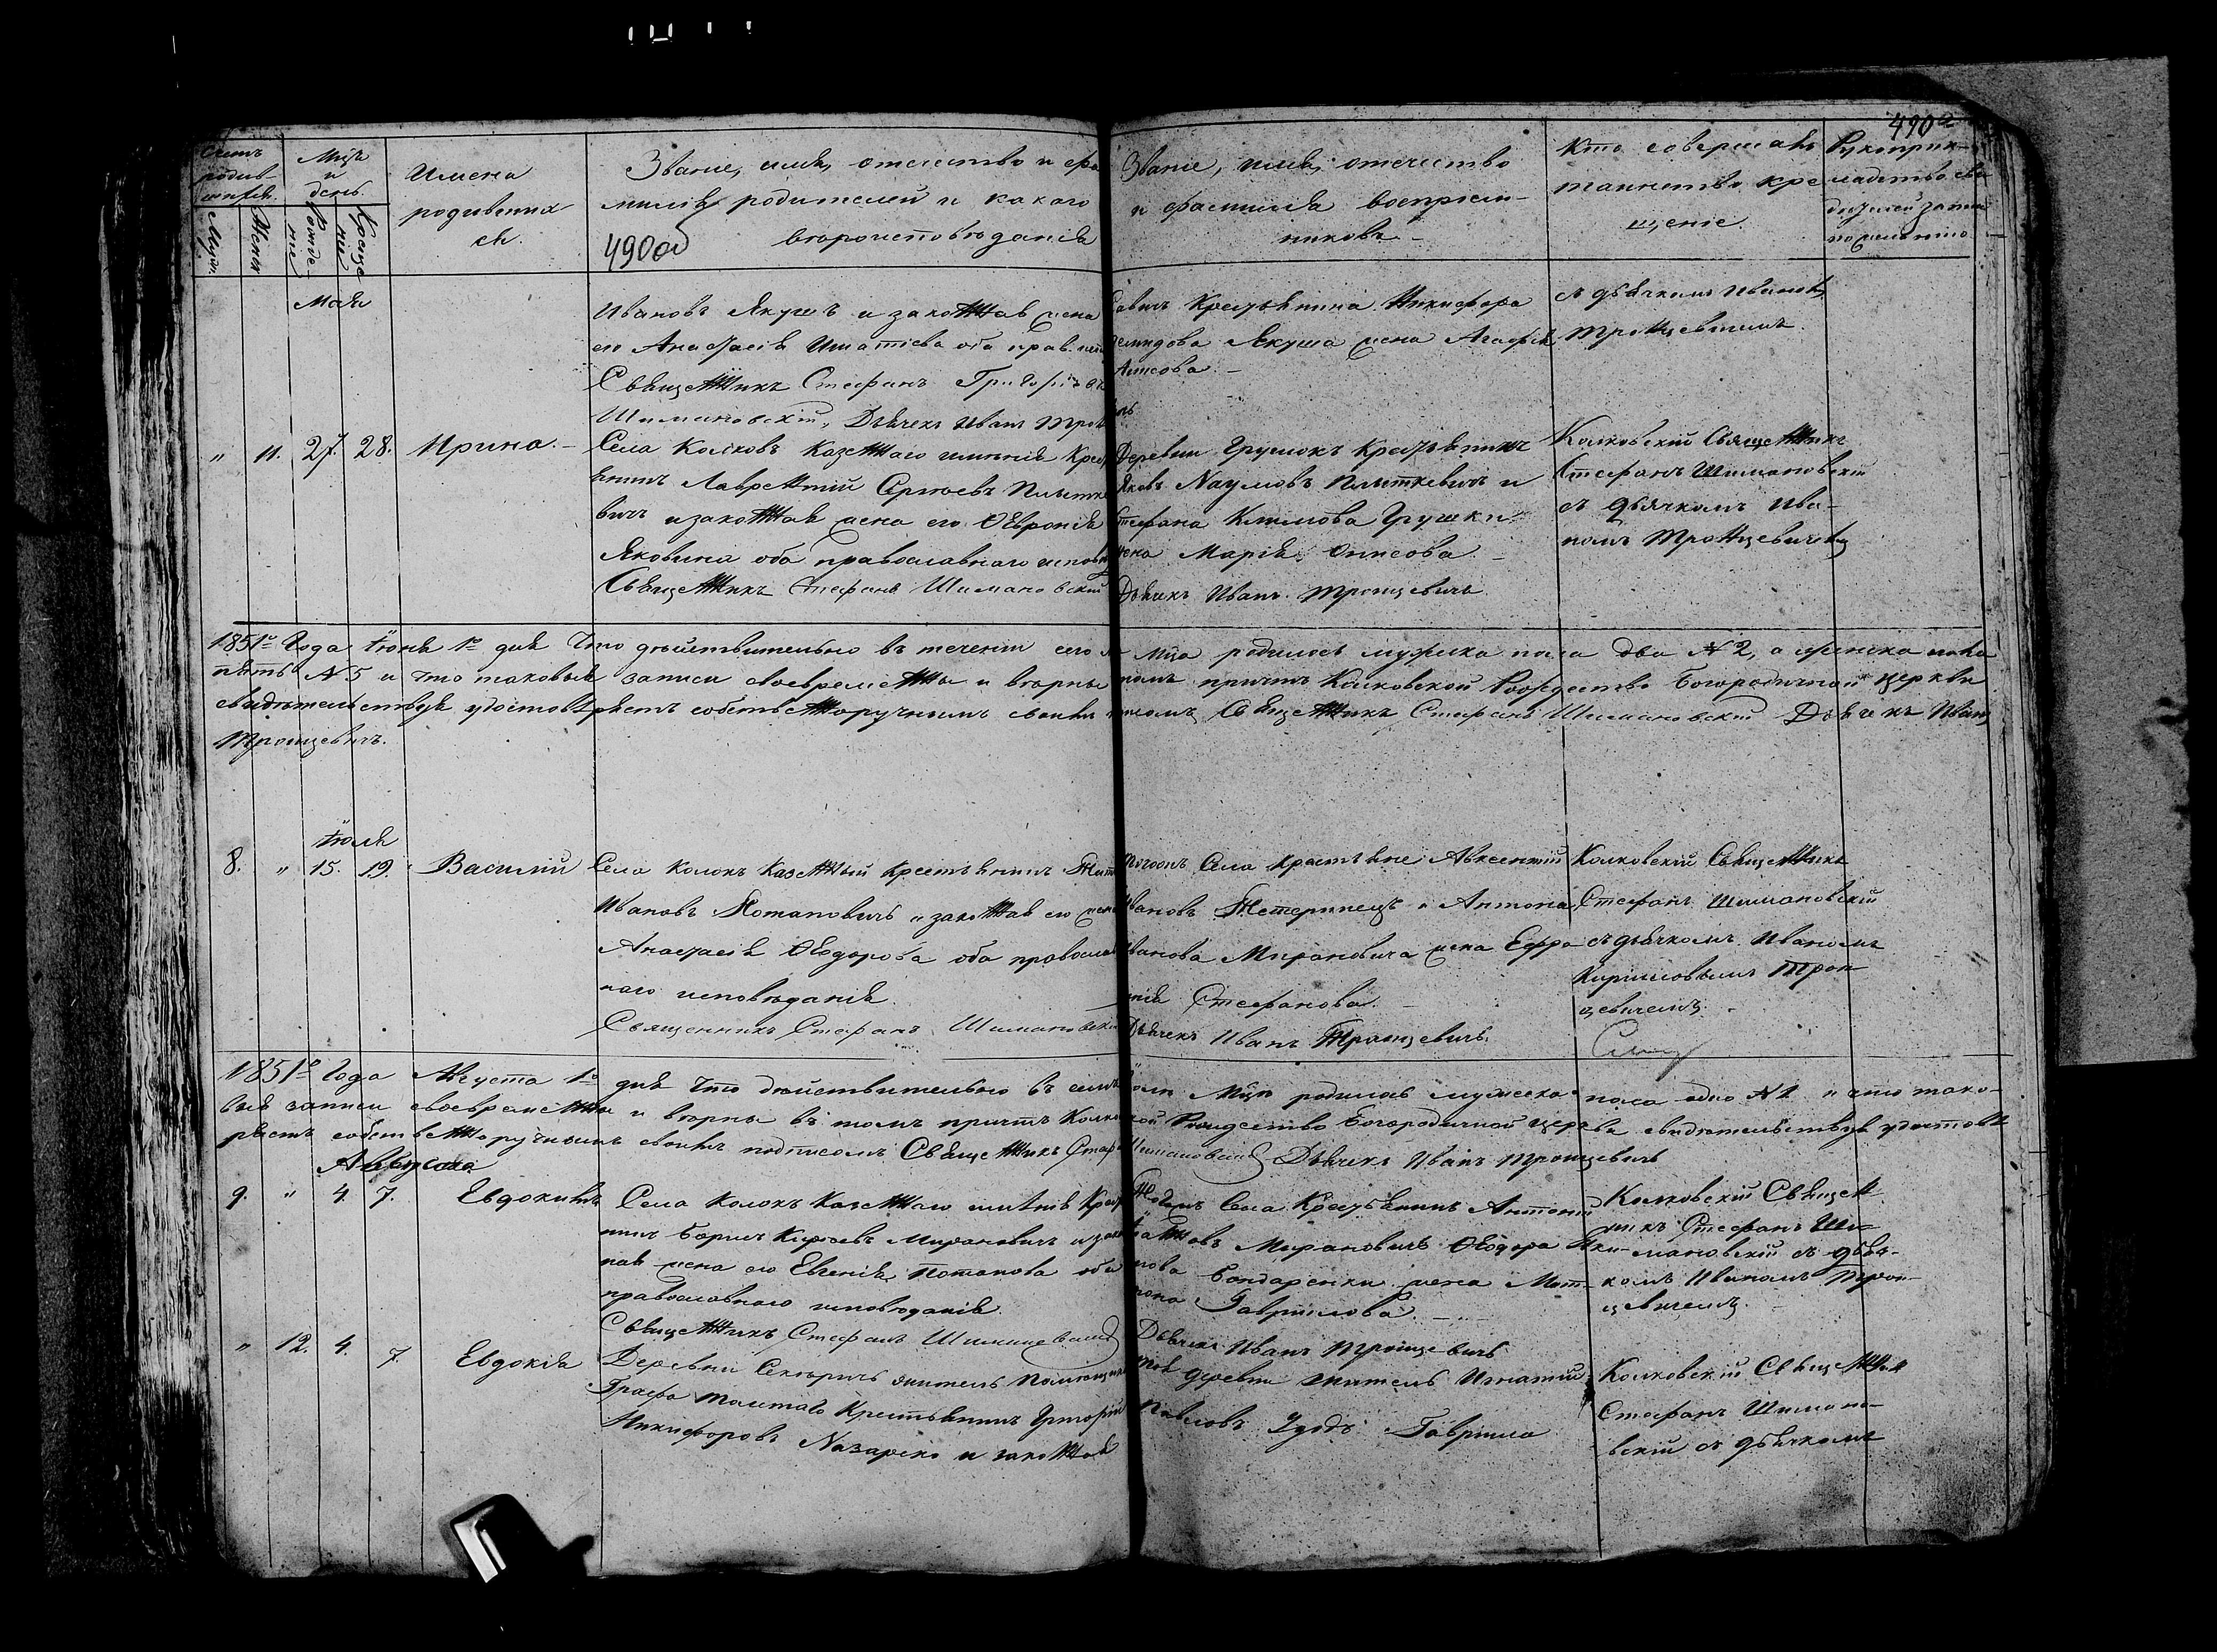 490а
Счетъ родившихся.
Мѣсяцъ и день.
Имена родившихся.
Званіе, имя, отечество и фамилія родителей и какого вѣроисповѣданія
490об
Званіе, имя, отечество и фамилія воспріемниковъ
Кто совершалъ таинство крещенія.
Рукоприкладство свидѣтелей записи по желанію
Мужск.
Женск
Рожденіе
Крещеніе
Мая
Ивановъ Якушъ и законная жена
его Анастасія Игнатіева оба прав. исп
Священникъ Стефанъ Григорьевъ
Шимановскій, Дьячекъ Иванъ
крестьянина Никифора
Демидова Якуша жена Агафія
съ дьячкомъ Иваномъ
Тронцевичемъ.
„ 11. 27. 28. Ирина.
Села Колковъ Казеннаго имѣнія Крест
янинъ Лаврентій Сергѣевъ Плытке
вичъ и законная жена его Ѳевронія
Яковина оба православнаго исповѣд
Священникъ Стефанъ Шимановскій
Деревни Грушокъ Крестьянинъ
Яковъ Наумовъ Плыткевичъ и
Стефана Климова Грушки
жена Марія Онисова
Дьячекъ Иванъ Тронцевичъ.
Колковскій Священникъ
Стефанъ Шимановскій
съ дьячкомъ Ива-
номъ Тронцевичемъ
1851го Года Іюня 1го дня Что дѣйствительно въ теченіи сего м-ца родилось мужеска пола два №2, а женска пола
пять №5 и что таковыя записи своевременны и вѣрны въ томъ причтъ Колковской Рождество Богородичной церкви
свидѣтельствуя удостовѣряетъ собственноручнымъ своимъ подписомъ Священникъ Стефанъ Шимановскій Дьячекъ Иванъ
Тронцевичъ.
Іюля
8. „ 15. 19. Василій
Села Колокъ Казенный Крестьянинъ
Ивановъ Потаповичъ и законная его жена
Анастасія Ѳеодорова оба православ
наго исповѣданія.
Священникъ Стефанъ Шимановскій
Тогожъ Села Крестьяне Авксентій
Ивановъ Тетеринецъ и Антона
Иванова Мироновича жена Ефро
нія Стефанова.
Дьячекъ Иванъ Тронцевичъ.
Колковскій Священникъ
Стефанъ Шимановскій
съ дьячкомъ Иваномъ
Кирилловымъ Трон
цевичемъ.
1851го Года Августа 1го дня Что дѣйствительно въ семъ Іюли м-цѣ родился мужеска пола одно №1 и что тако-
выя записи своевременны и вѣрны въ томъ причтъ Колковской Рождество Богородичной церкви свидѣтельствуя удостовѣ
ряетъ собственноручнымъ своимъ подписомъ Священникъ Стефанъ Шимановскій Дьячекъ Иванъ Тронцевичъ
Августа
9. „ 4. 7. Евдокимъ
Села Колокъ Казеннаго имѣнія Крестья
нинъ Борисъ Мироновичъ и закон
ная жена его Евгенія Потапова оба
православнаго исповѣданія.
Священникъ Стефанъ Шимановскій
Тогожъ Села Крестьянинъ Антоній
Мироновичъ Ѳеодора Яки-
мова Бондаренки жена Мат-
рона Гаврилова.
Дьячекъ Иванъ Тронцевичъ
Колковскій Священ
никъ Стефанъ Ши-
мановскій съ дьяч-
комъ Иваномъ Трон-
цевичемъ.
„ 12. 4. 7. Евдокія
Деревни житель Помѣщика
Графа Крестьянинъ Григорій
Никифоровъ Назарко и законная
Той деревни житель Игнатій
Павловъ Удодъ Гаврила
Колковскій Священник
Стефанъ Шимано-
вскій съ дьячкомъ